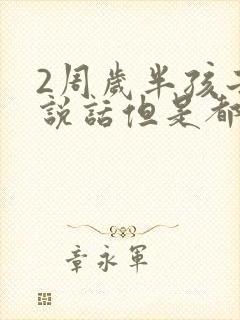 2周岁半孩子
說話但是都
章永軍